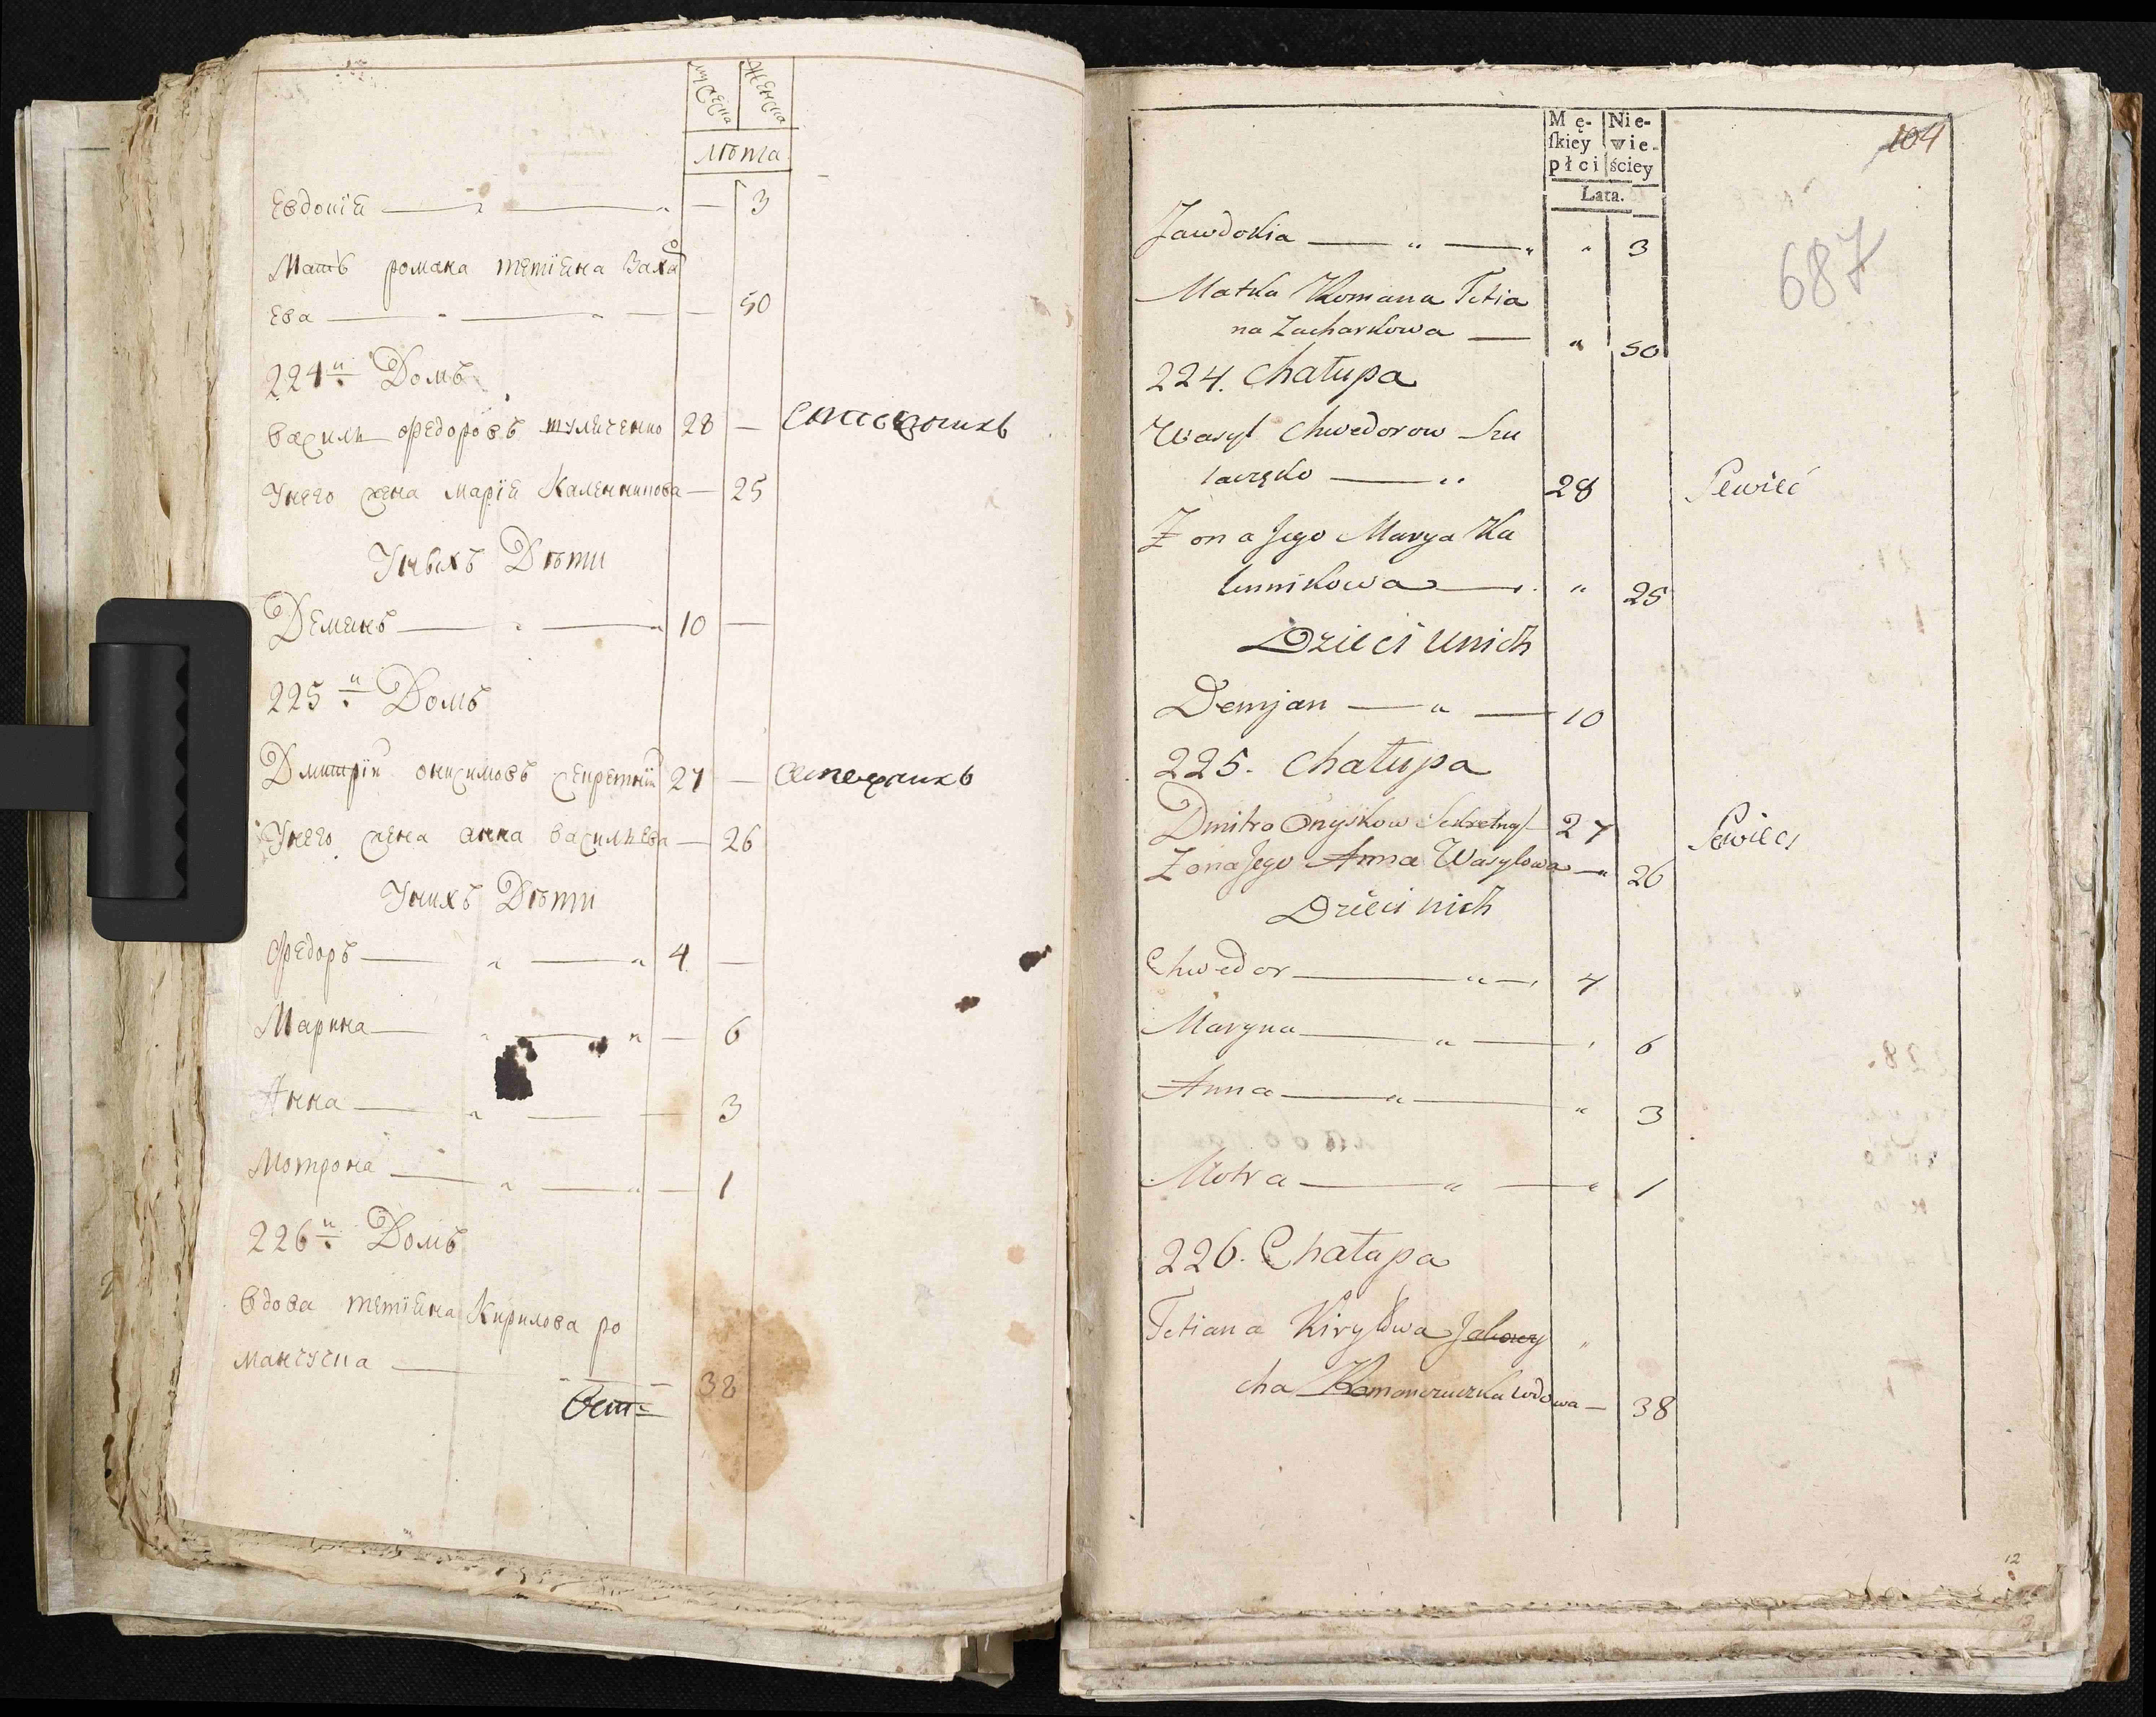 мужеска
женска
лѣта
Евдокїа — „ — „ — 3
Мать романа тетїана Захарко
Ева — — — 50
224й Домъ
василь федоровъ шуляченко 28 —
Унего жена марїа Каленникова — 25
Унихъ Дѣти
Демянъ — „ — „ 10 —
225й Домъ
Дмитрїи онисимовъ секретнїй 27 —
Унего жена анна василиева — 26
Унихъ Дѣти
Федоръ — „ — „ 4 —
Марина — „ — „ — 6
Анна — „ — — 3
Мотрона — „ — „ — 1
226й Домъ
вдова тетїана Кирилова ро
манчучка — 38
104
687
Mę- Nie-
ſkiey wie-
płci ściey
Lata.
Jawdokia — „ — „ „ 3
Matka Romana Tetia
na Zacharkowa — „ 50
224. Chałupa
Wasyl Chwedorow Szu
laczęko — „ 28
Zona Jego Marya Ka
lennikowa — „ 25
Dzieci unich
Demjan — „ — 10
225. Chałupa
Dmitro Onyskow Sekretny 27
Zona Jego Anna Wasylowa — „ 26
Dzieci nich
Chwedor — „ — 4
Maryna — „ — „ 6
Anna — „ — „ 3
Motra — „ — „ 1
226. Chałupa
Tetiana Kiryłowa „
cha Romanczuczka wdowa — 38
12